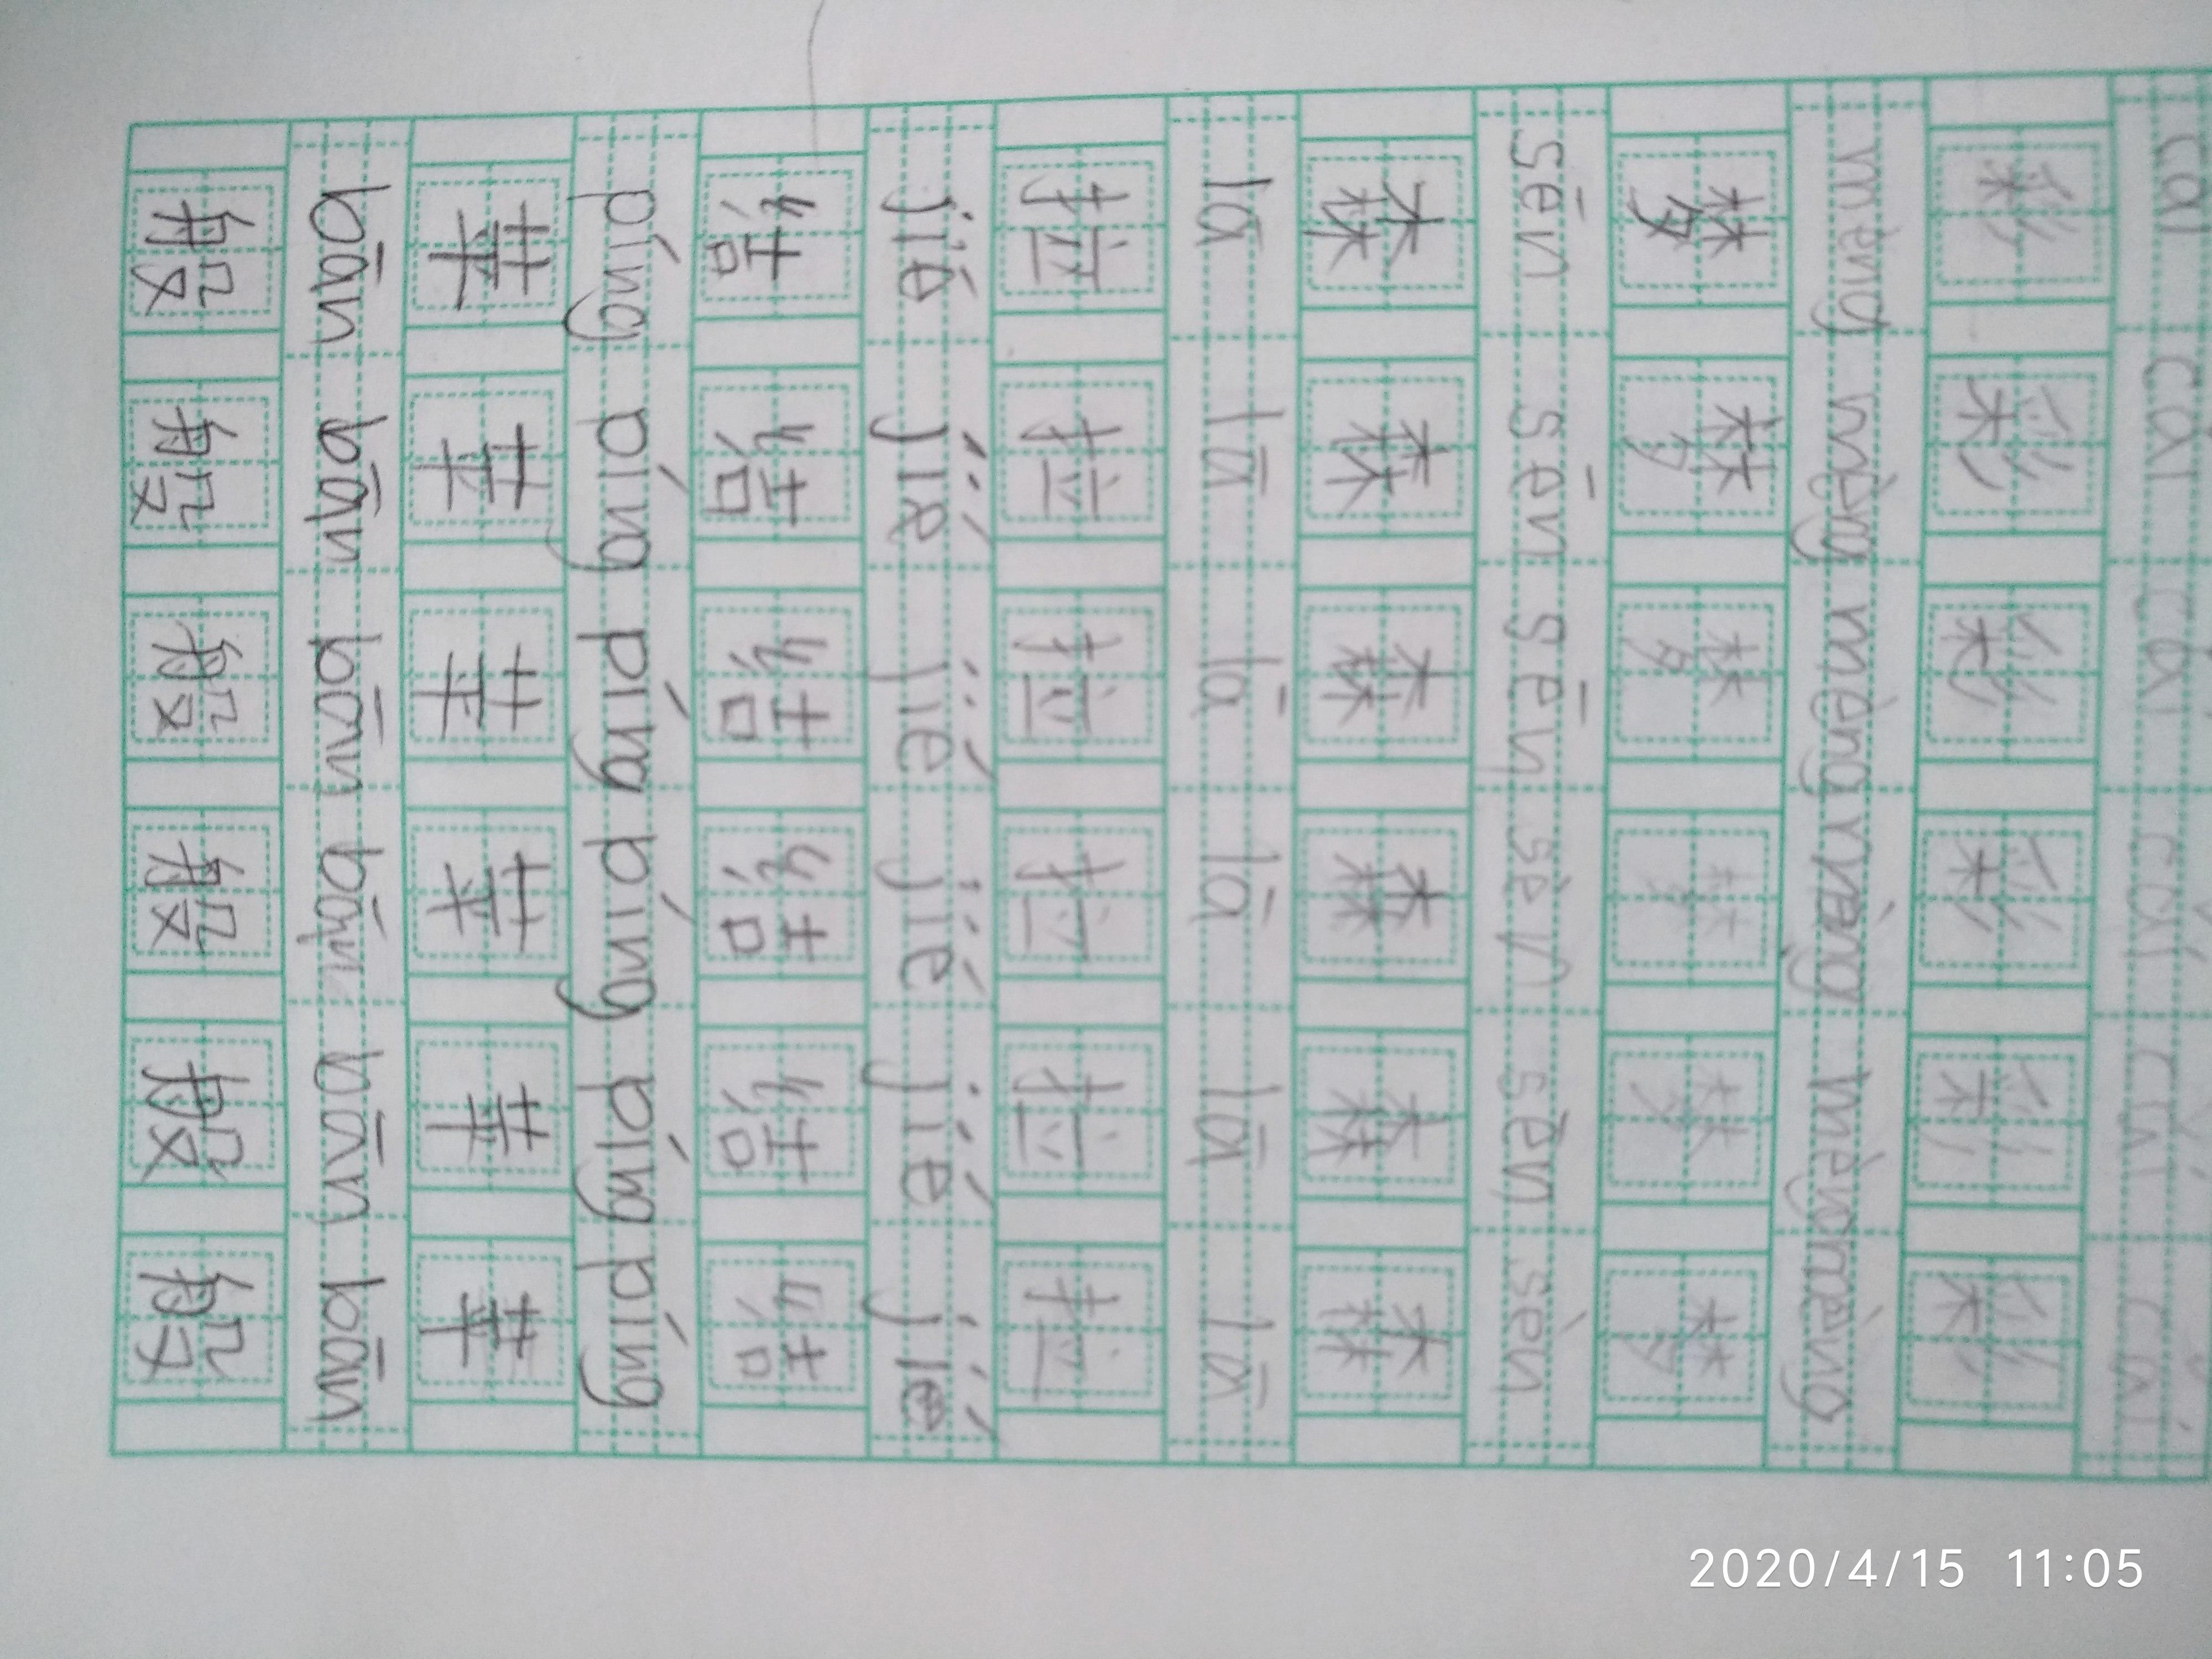 cǎi cǎi cǎi cǎi cǎi cǎi
彩 彩 彩 彩 彩 彩
mèng mèng mèng mèng mèng mèng
梦 梦 梦 梦 梦 梦
sēn sēn sēn sēn sēn sēn
森 森 森 森 森 森
lā lā lā lā lā lā
拉 拉 拉 拉 拉 拉
jié jié jié jié jié jié
结 结 结 结 结 结
píng píng píng píng píng píng
苹 苹 苹 苹 苹 苹
bān bān bān bān bān bān
般 般 般 般 般 般
2020/4/15 11:05